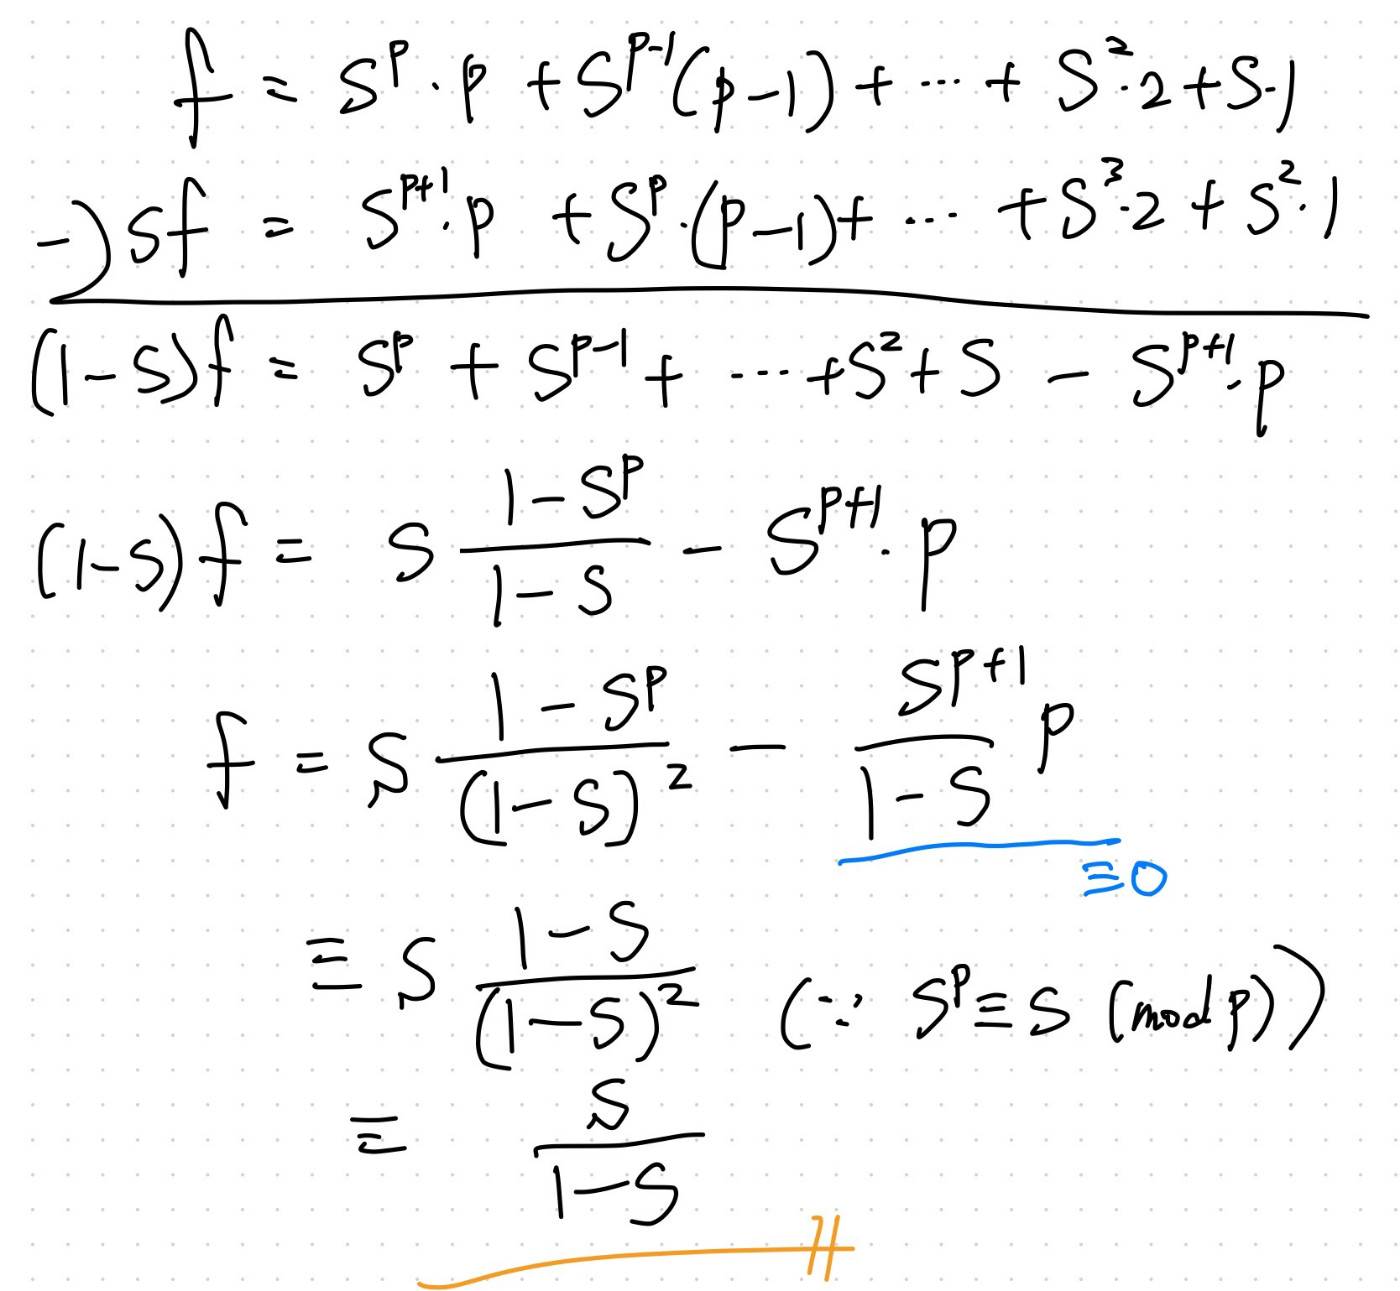 f = S^p · p + S^{p-1}(p-1) + ... + S^2·2 + S·1
-) Sf = S^{p+1}·p + S^p·(p-1) + ... + S^3·2 + S^2·1
(1-S)f = S^p + S^{p-1} + ... + S^2 + S - S^{p+1}·p
(1-S)f = S \frac{1-S^p}{1-S} - S^{p+1}·p
f = S \frac{1-S^p}{(1-S)^2} - \frac{S^{p+1}}{1-S} p
≡0
≡ S \frac{1-S}{(1-S)^2} (∵ S^p ≡ S (mod p))
≡ \frac{S}{1-S}